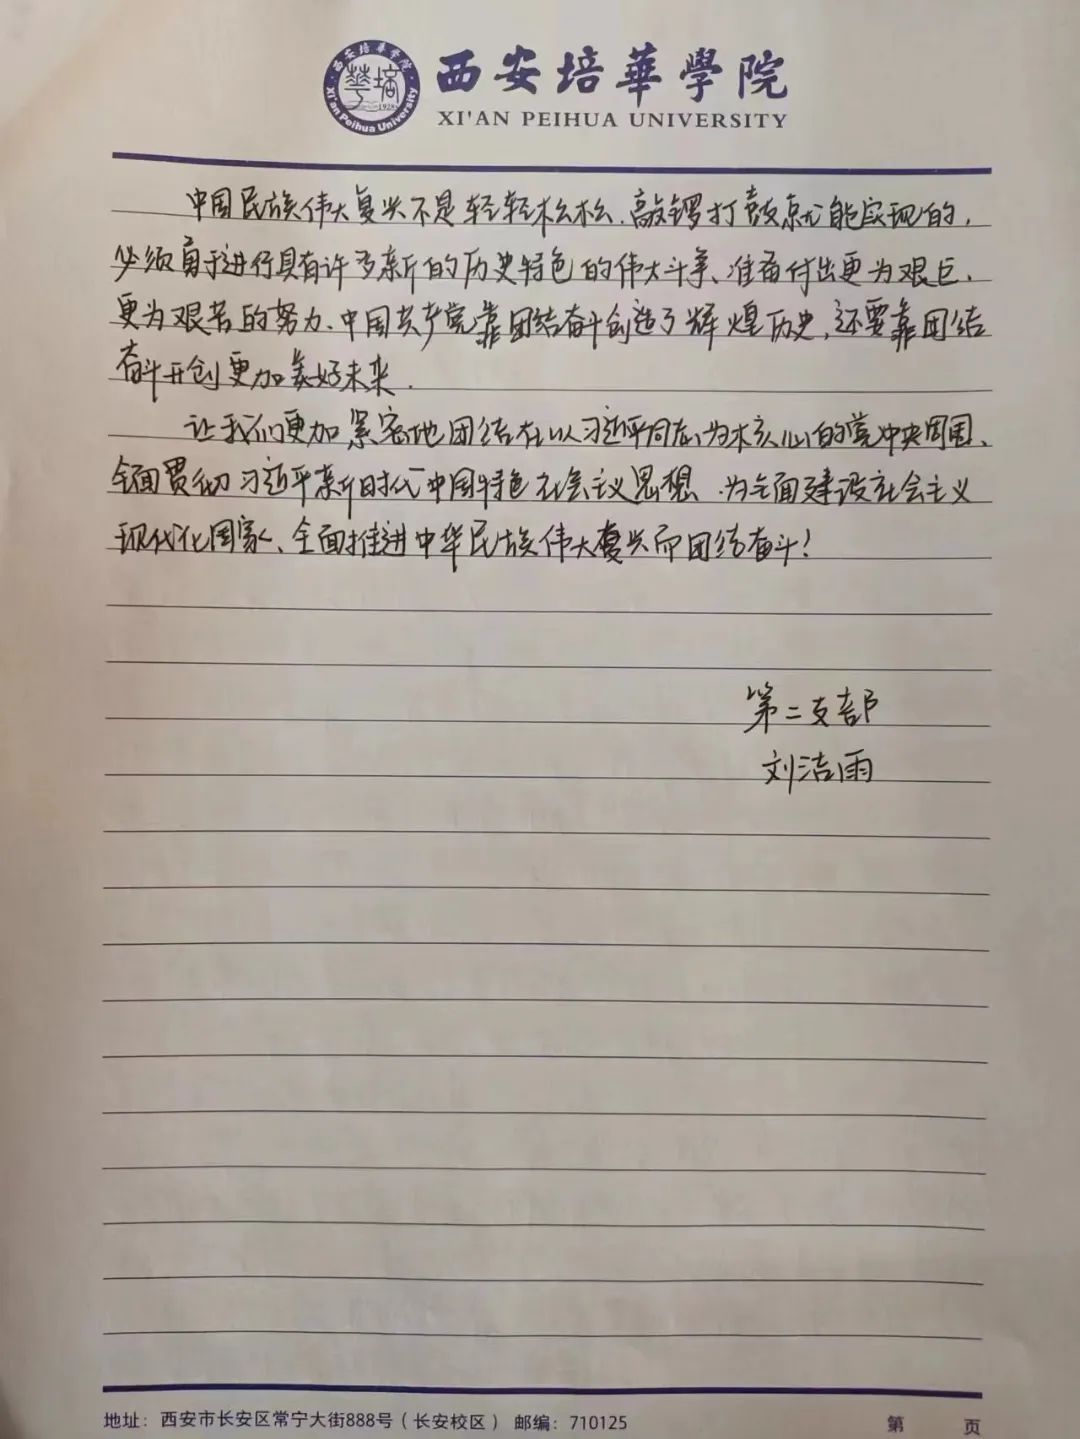 西安培華學院
XI'AN PEIHUA UNIVERSITY
西安培華学院
Xi'an Peihua University
1928
中国民族伟大复兴不是轻轻松松、敲锣打鼓就能实现的,
必须勇于进行具有许多新的历史特色的伟大斗争、准备付出更为艰巨、
更为艰苦的努力、中国共产党靠团结奋斗创造了辉煌历史,还要靠团结
奋斗开创更加美好未来.
让我们更加紧密地团结在以习近平同志为核心的党中央周围、
全面贯彻习近平新时代中国特色社会主义思想、为全面建设社会主义
现代化国家、全面推进中华民族伟大复兴而团结奋斗!
第二支部
刘洁雨
地址：西安市长安区常宁大街888号（长安校区） 邮编：710125
第 页